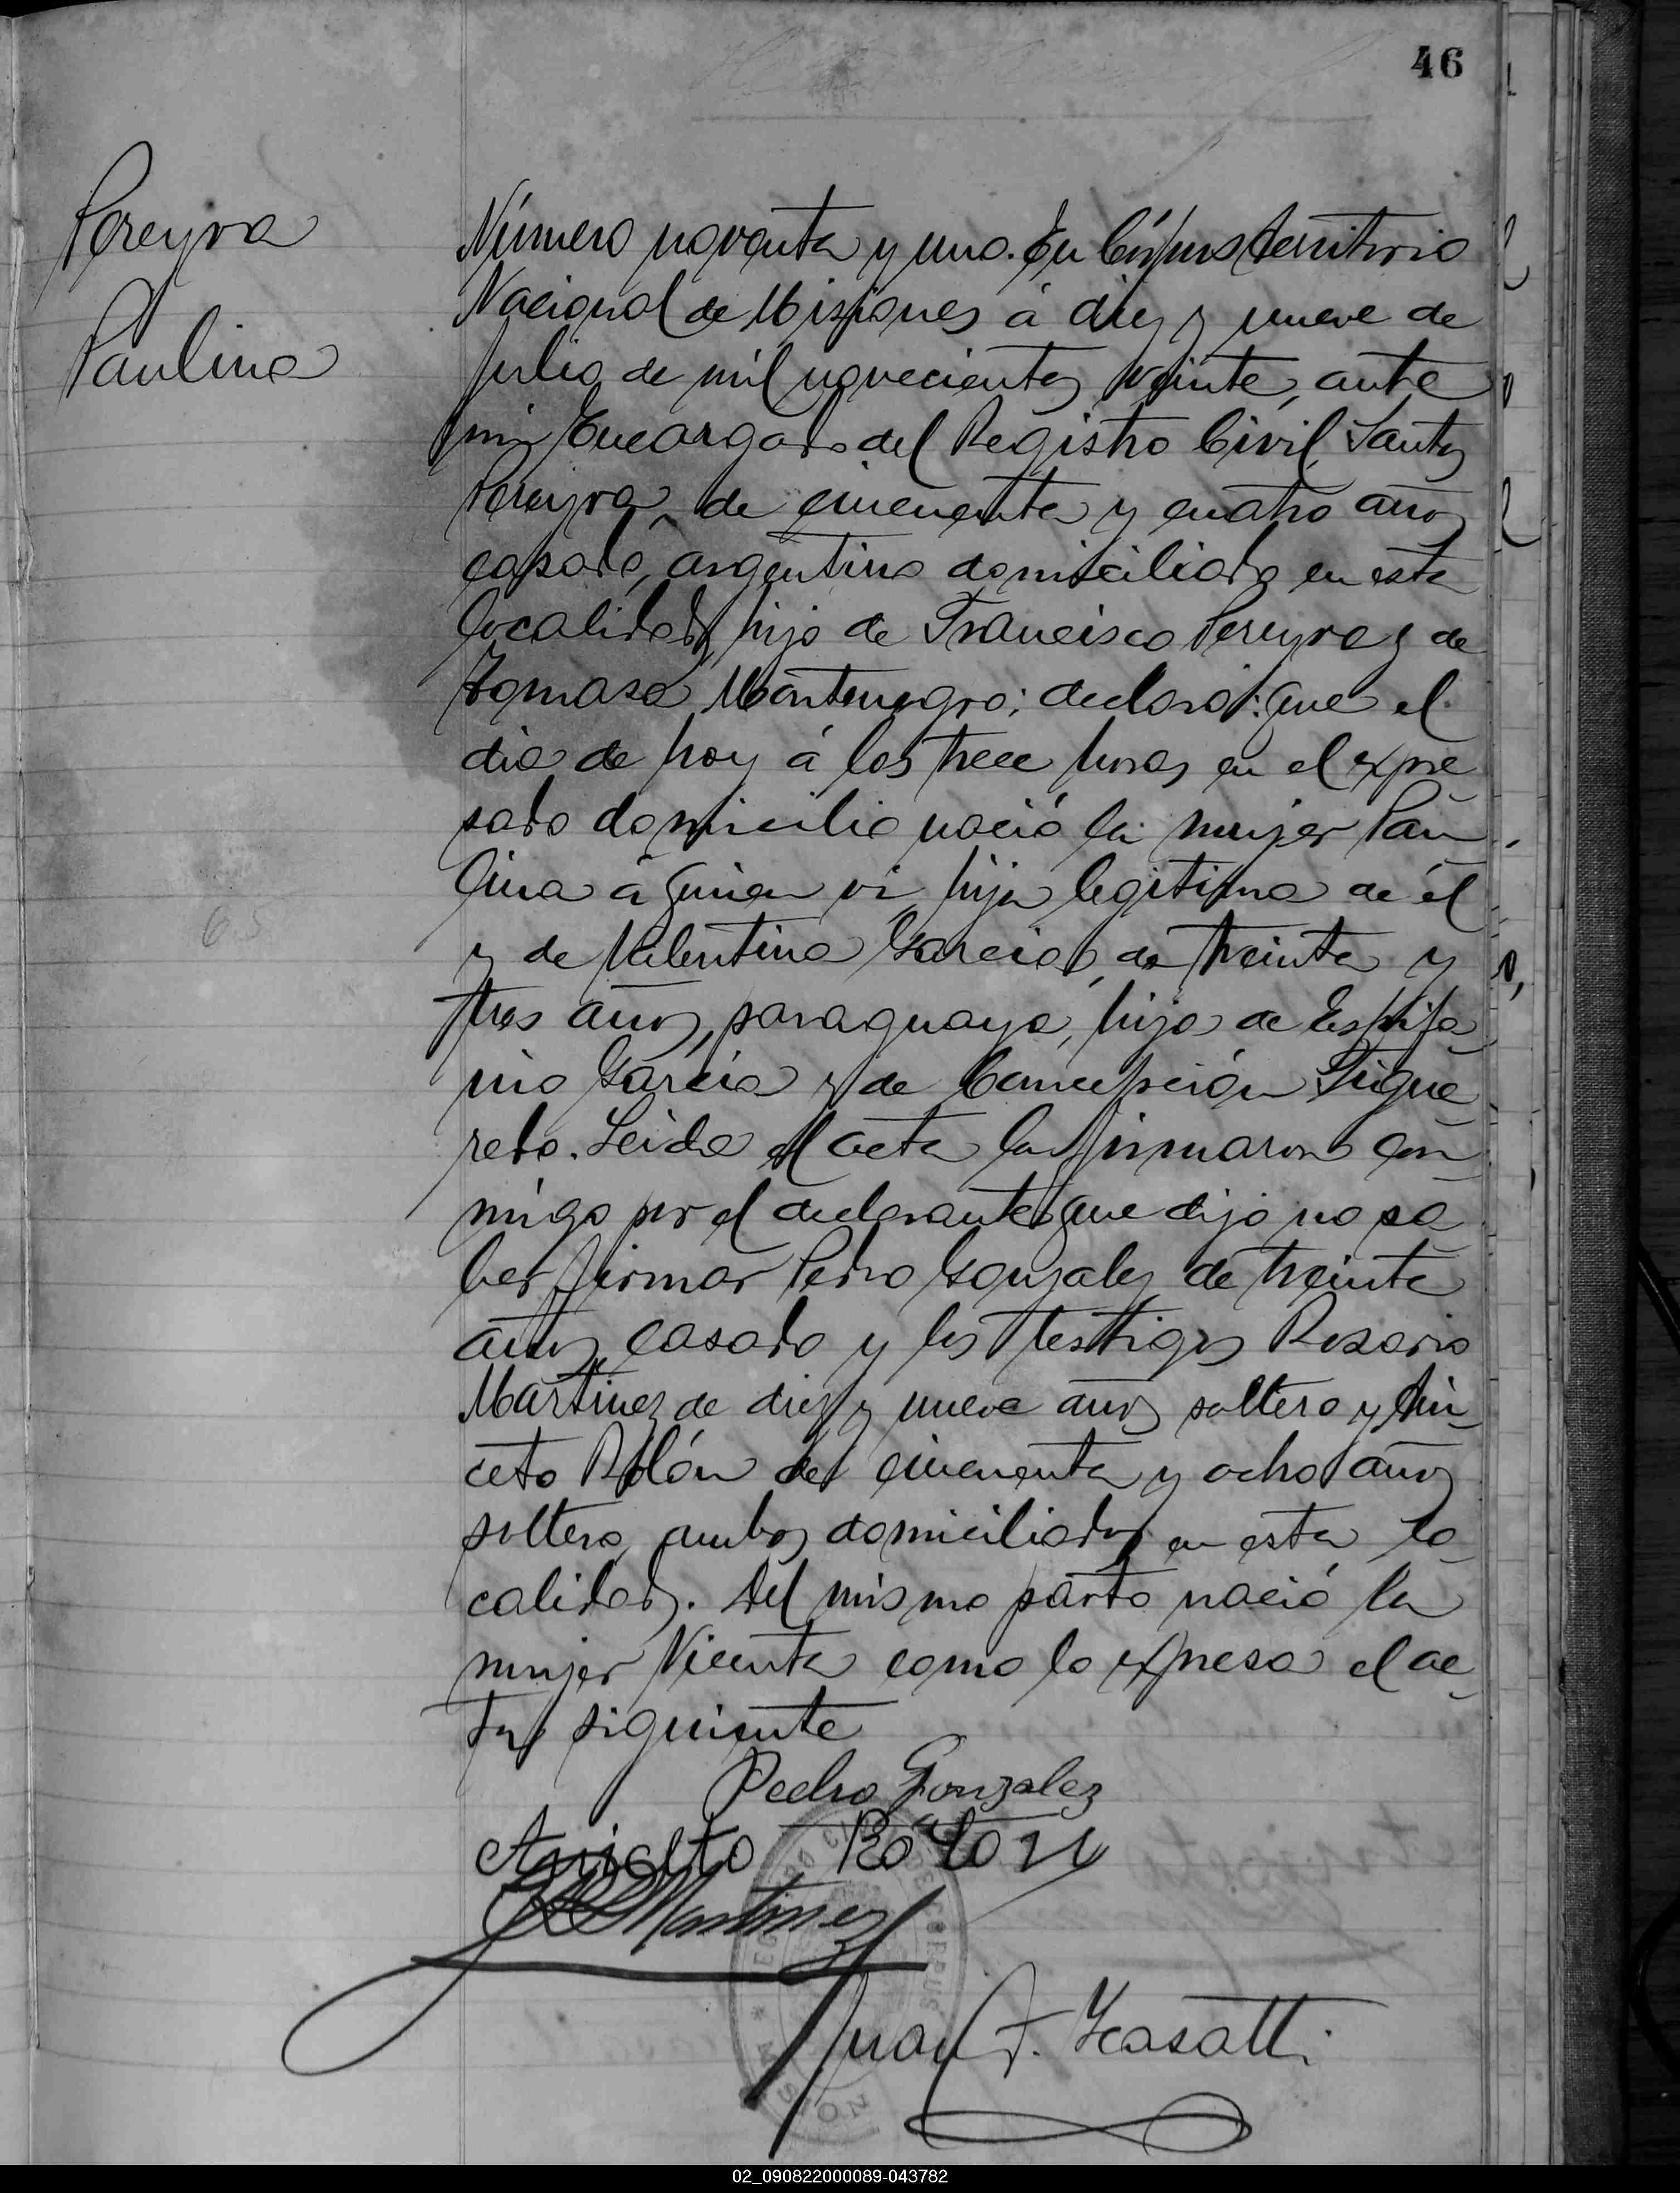 46
Pereyra
Paulina
Número noventa y uno. En Corpus territorio
Nacional de Misiones á diez y nueve de
Julio de mil novecientos veinte, ante
mi Encargado del Registro Civil, Santos
Pereyra, de cincuenta y cuatro años
casado, argentino domiciliado en esta
localidad, hijo de Francisco Pereyra y de
Tomasa Montenegro; declaró: que el
dia de hoy á las trece horas en el expre
sado domicilio nació la mujer Pau
lina á quien vi hija legitima de él
y de Valentina Garcia, de treinta y
tres años, paraguaya, hija de Epifa
nio Garcia y de Concepción Figue
redo. Leida el acta la firmaron con
migo por el declarante que dijo no sa
ber firmar Pedro Gonzalez de treinta
años casado y los testigos Rosario
Martinez de diez y nueve años soltero y Ani
ceto Rolón de cincuenta y ocho años
soltero, ambos domiciliados en esta lo
calidad. Del mismo parto nació la
mujer Vicenta como lo expresa el ac
ta siguiente
Pedro Gonzalez
Anicéto Rólon
R Martinez
Juan F.
02_090822000089-043782